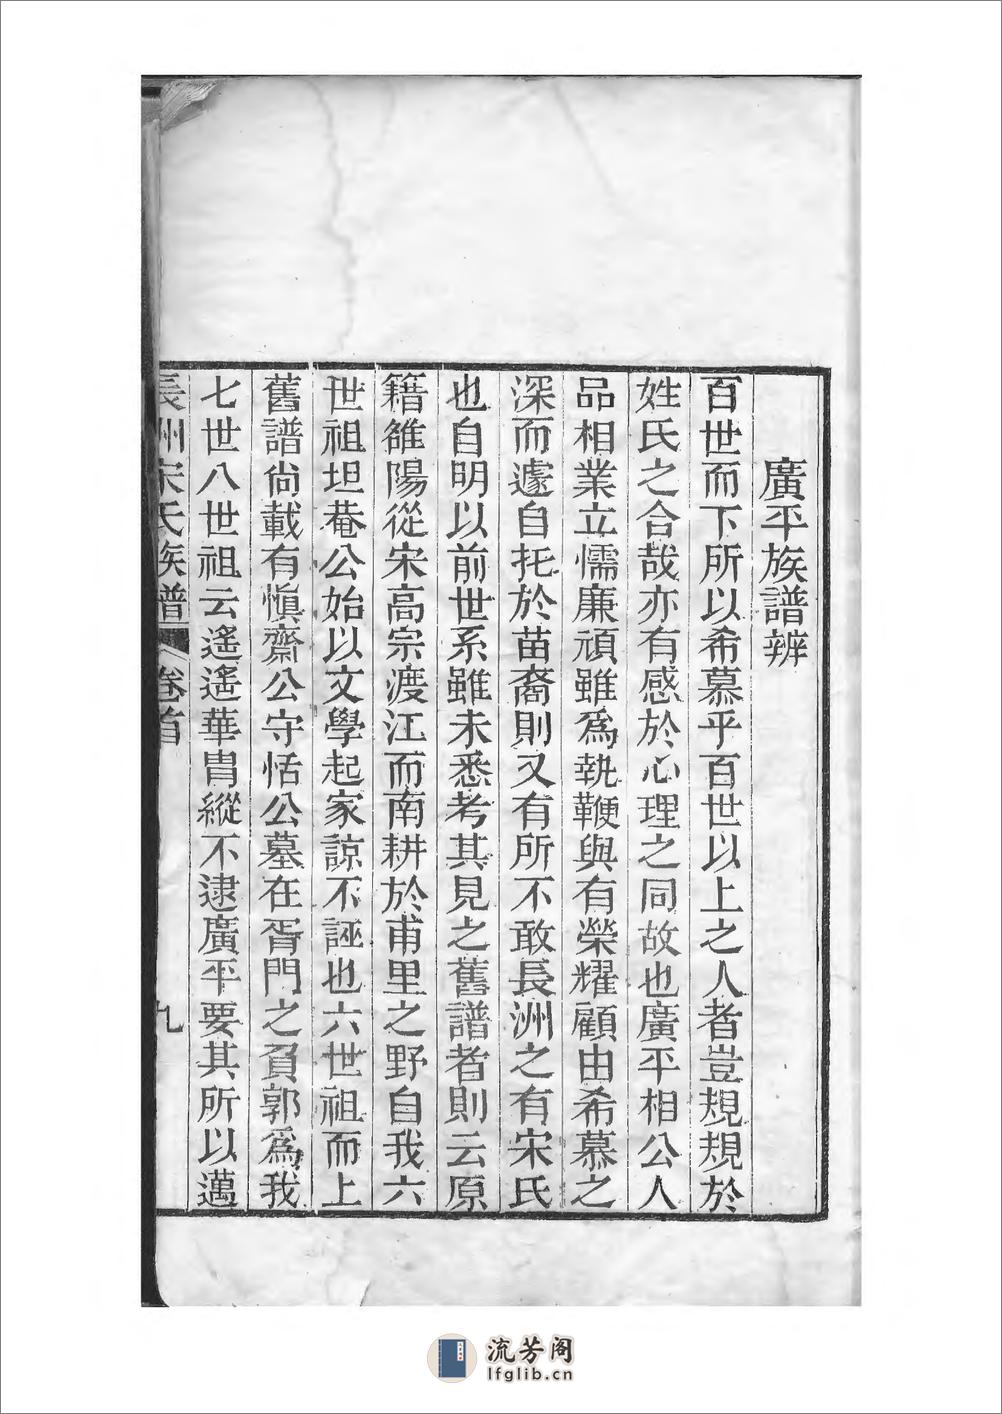 廣平族譜辨
百世而下所以希慕乎百世以上之人者豈規規於
姓氏之合哉亦有感於心理之同故也廣平相公人
品相業立懦廉頑雖爲執鞭與有榮耀顧由希慕之
深而遽自托於苗裔則又有所不敢長洲之有宋氏
也自明以前世系雖未悉考其見之舊譜者則云原
籍雒陽從宋高宗渡江而南耕於甫里之野自我六
世祖坦菴公始以文學起家諒不誣也六世祖而上
舊譜尙載有愼齋公守恬公墓在胥門之負郭爲我
七世八世祖云遙遙華冑縱不逮廣平要其所以邁
長州宋氏族譜 卷首 九
流芳阁
lfglib.cn